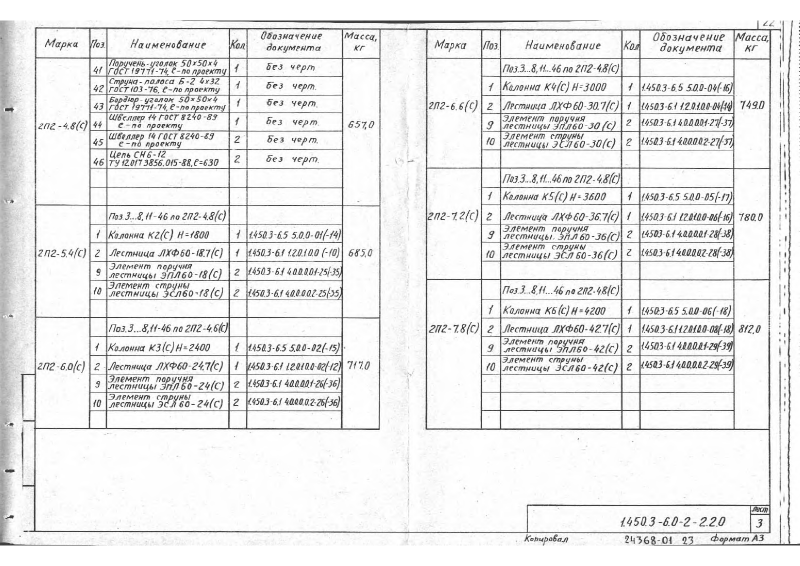 22
Марка Поз. Наименование Кол Обозначение документа Масса, кг
2П2-4.8(С) 657,0
41 Поручень-уголок 50×50×4 ГОСТ 19771-74, ℓ-по проекту 1 Без черт.
42 Струна-полоса Б-2 4×32 ГОСТ 103-76, ℓ-по проекту 1 Без черт.
43 Бордюр-уголок 50×50×4 ГОСТ 19771-74, ℓ-по проекту 1 Без черт.
44 Швеллер 14 ГОСТ 8240-89 ℓ-по проекту 1 Без черт.
45 Швеллер 14 ГОСТ 8240-89 ℓ-по проекту 2 Без черт.
46 Цепь СН6-12 ТУ 12.0173856.015-88, ℓ=630 2 Без черт.
2П2-5.4(С) 685,0
Поз.3...8,11-46 по 2П2-4.8(С)
1 Колонна К2(С) Н=1800 1 1.450.3-6.5 5.0.0-01(-14)
2 Лестница ЛХФ60-18.7(С) 1 1.450.3-6.1 1.2.0.1.0.0 (-10)
9 Элемент поручня лестницы ЭПЛ60-18(С) 2 1.450.3-6.1 4.0.0.0.0.1-25(-35)
10 Элемент струны лестницы ЭСЛ60-18(С) 2 1.450.3-6.1 4.0.0.0.0.2-25(-35)
2П2-6.0(С) 717,0
Поз.3...8,11-46 по 2П2-4.6(С)
1 Колонна К3(С) Н=2400 1 1.450.3-6.5 5.0.0-02(-15)
2 Лестница ЛХФ60-24.7(С) 1 1.450.3-6.1 1.2.0.1.0.0-02(-12)
9 Элемент поручня лестницы ЭПЛ60-24(С) 2 1.450.3-6.1 4.0.0.0.0.1-26(-36)
10 Элемент струны лестницы ЭСЛ60-24(С) 2 1.450.3-6.1 4.0.0.0.0.2-26(-36)
Марка Поз Наименование Кол Обозначение документа Масса, кг
2П2-6.6(С) 749.0
Поз.3...8,11...46 по 2П2-4.8(С)
1 Колонна К4(С) Н=3000 1 1.450.3-6.5 5.0.0-04(-16)
2 Лестница ЛХФ60-30.7(С) 1 1.450.3-6.1 1.2.0.1.0.0-04(-14)
9 Элемент поручня лестницы ЭПЛ60-30(С) 2 1.450.3-6.1 4.0.0.0.0.1-27(-37)
10 Элемент струны лестницы ЭСЛ60-30(С) 2 1.450.3-6.1 4.0.0.0.0.2-27(-37)
2П2-7.2(С) 780.0
Поз.3...8,11...46 по 2П2-4.8(С)
1 Колонна К5(С) Н=3600 1 1.450.3-6.5 5.0.0-05(-17)
2 Лестница ЛХФ60-36.7(С) 1 1.450.3-6.1 1.2.0.1.0.0-06(-16)
9 Элемент поручня лестницы ЭПЛ60-36(С) 2 1.450.3-6.1 4.0.0.0.0.1-28(-38)
10 Элемент струны лестницы ЭСЛ60-36(С) 2 1.450.3-6.1 4.0.0.0.0.2-28(-38)
2П2-7.8(С) 812,0
Поз.3...8,11...46 по 2П2-4.8(С)
1 Колонна К6(С) Н=4200 1 1.450.3-6.5 5.0.0-06(-18)
2 Лестница ЛХФ60-42.7(С) 1 1.450.3-6.1 1.2.0.1.0.0-08(-18)
9 Элемент поручня лестницы ЭПЛ60-42(С) 2 1.450.3-6.1 4.0.0.0.0.1-29(-39)
10 Элемент струны лестницы ЭСЛ60-42(С) 2 1.450.3-6.1 4.0.0.0.0.2-29(-39)
1.450.3-6.0-2-2.2.0
Лист
3
Копировал 24368-01 23 Формат А3